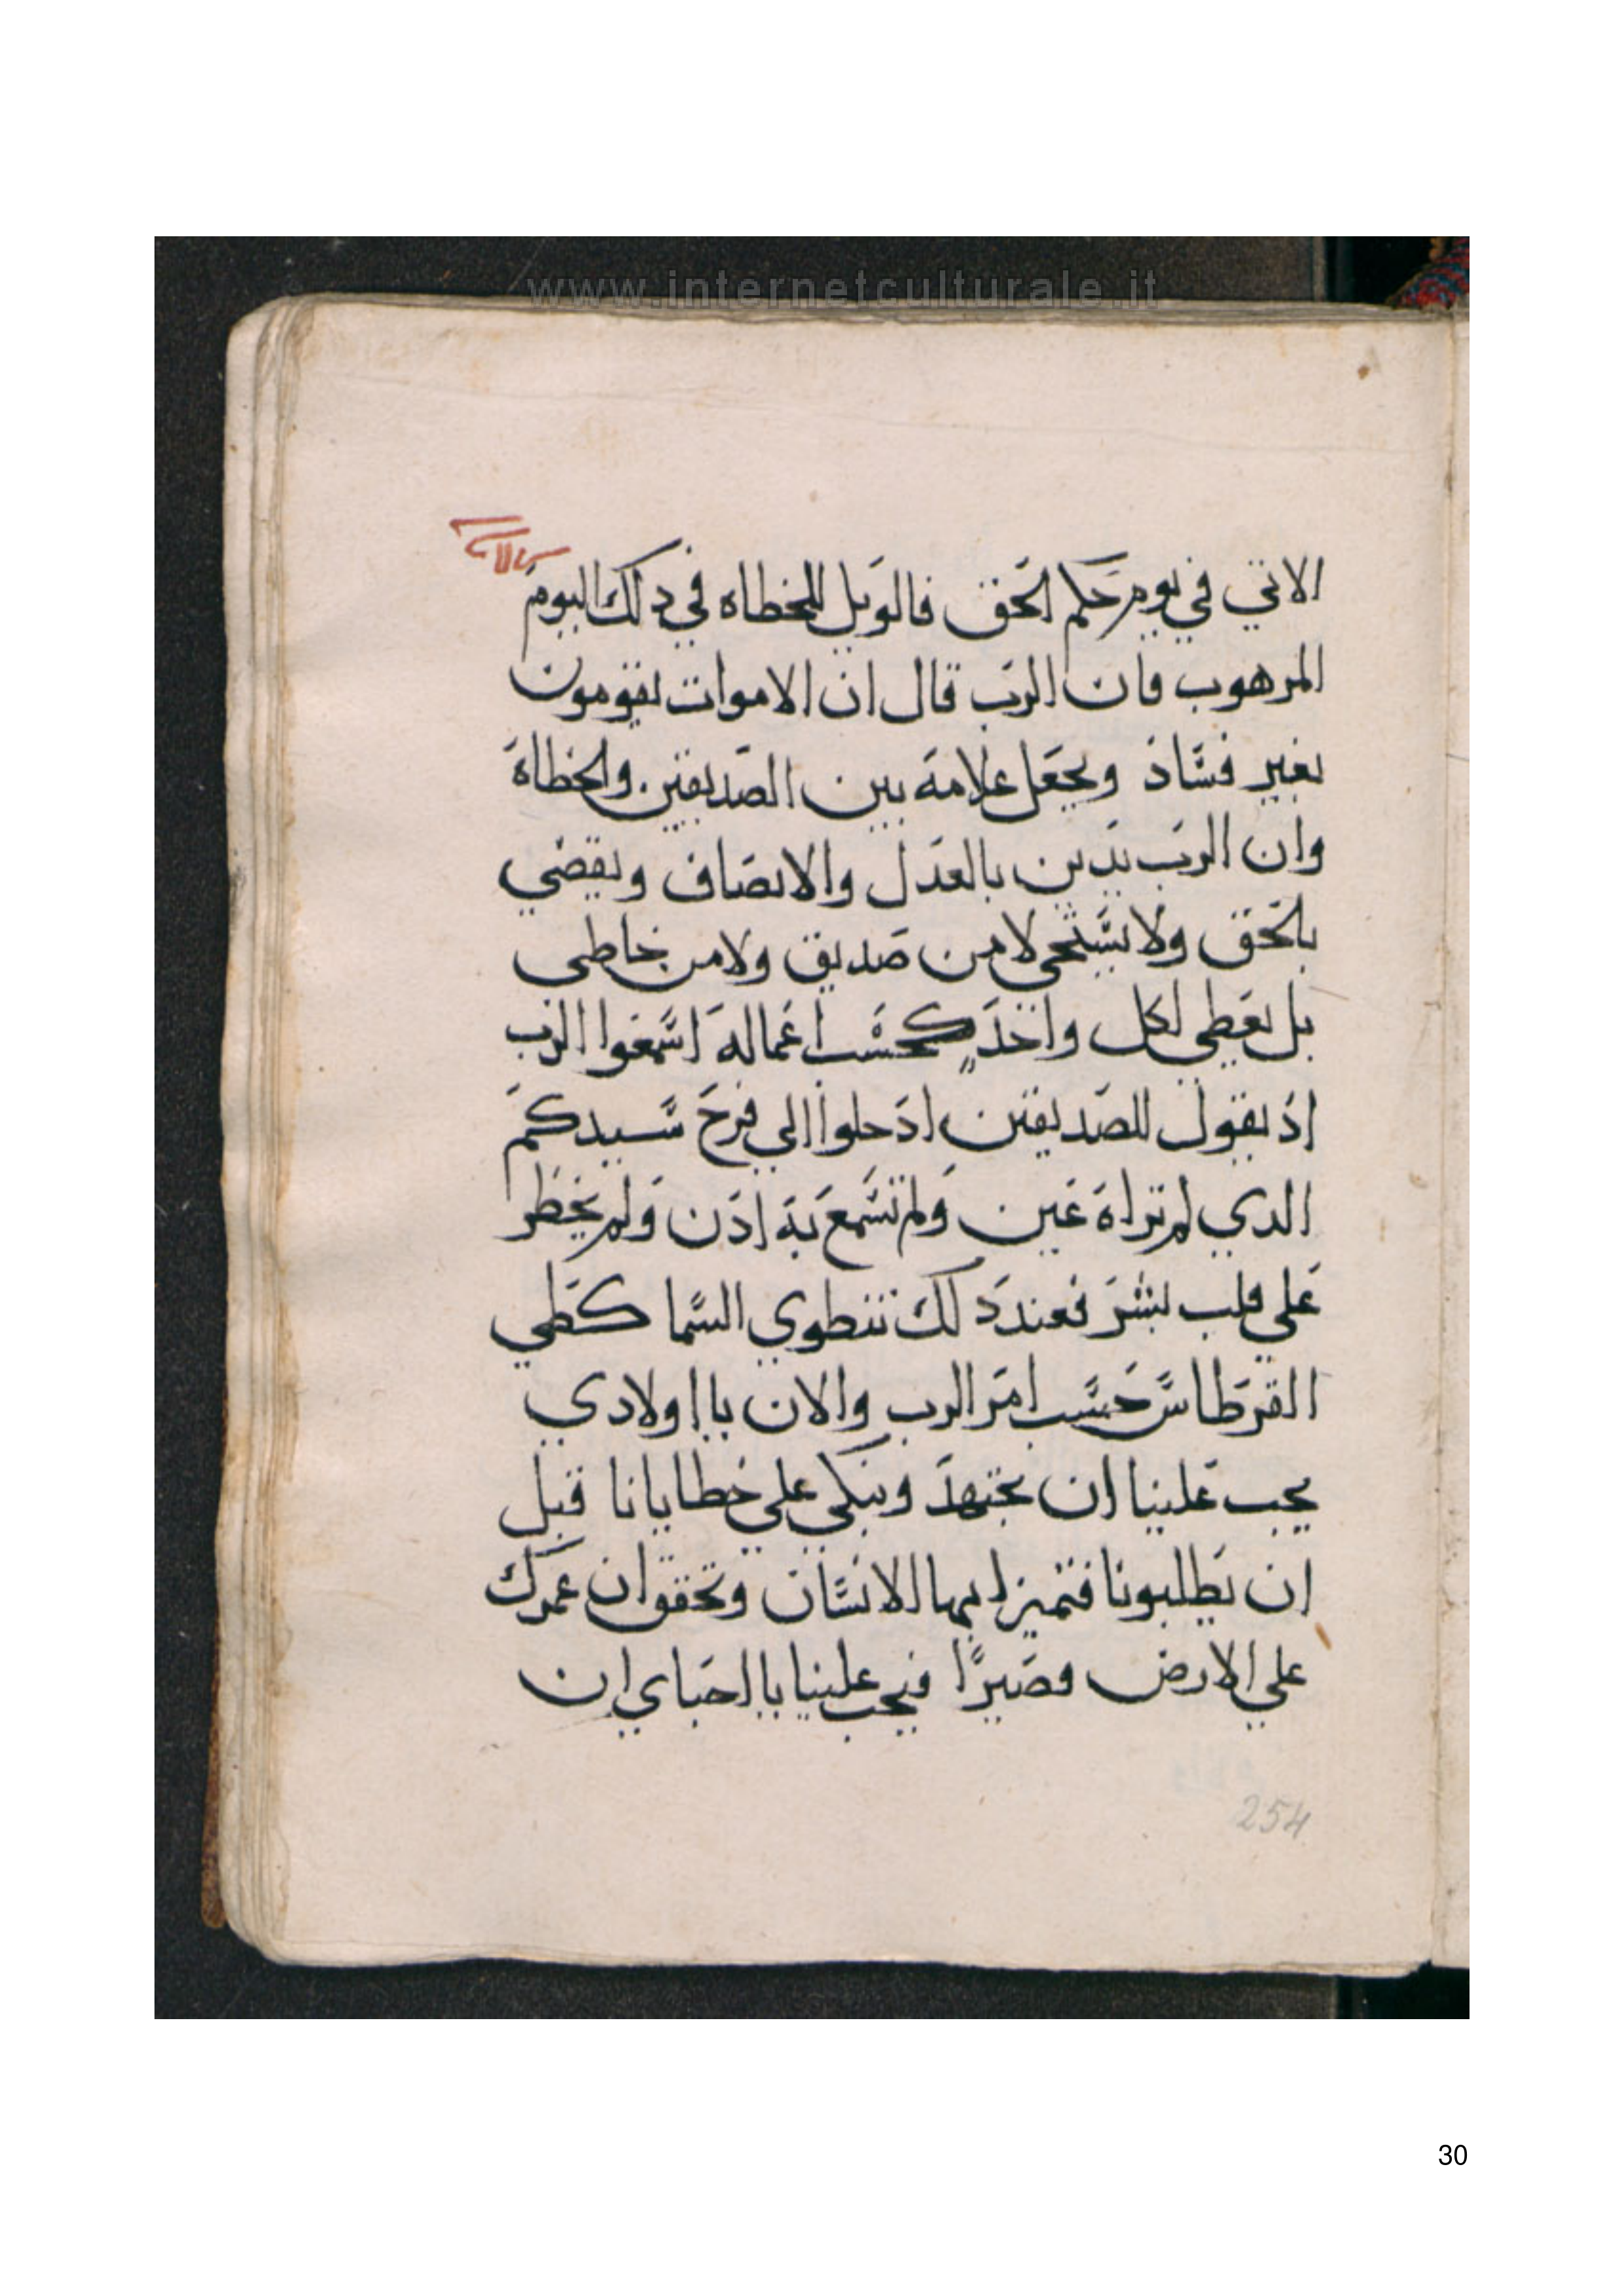 www.internetculturale.it
الاتي في يوم حكم الحق فالويل للخطاه في دلك اليوم
المرهوب فان الرب قال ان الاموات يقومون
بغير فساد ويجعل علامة بين الصديقين والخطاة
وان الرب يدين بالعدل والانصاف ويقضي
بالحق ولا يستحي لا من صديق ولا من خاطي
بل يعطي لكل واحد كحسب اعماله اسمعوا الرب
اد يقول للصديقين ادخلوا الي فرح سيدكم
الدي لم تراه عين ولم تسمع به ادن ولم يخطر
علي قلب بشر فعند دلك تنطوي السما كطي
القرطاس حسب امر الرب والان يا اولادي
يجب علينا ان نجتهد ونبكي علي خطايانا قبل
ان يطلبونا فتميز ايها الانسان وتحقق ان عمرك
علي الارض قصيرًا فيجب علينا يا احباي ان
254
30